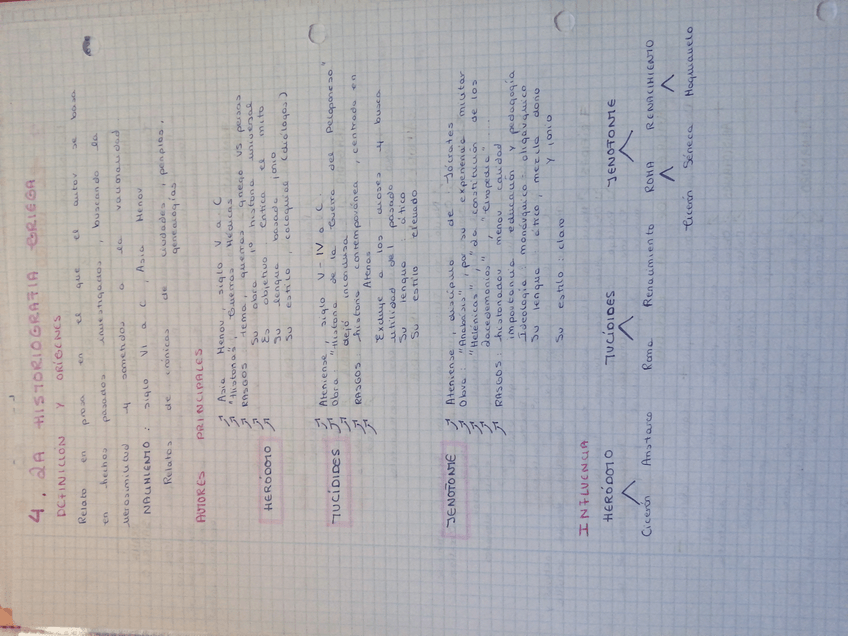 4. LA HISTORIOGRAFIA GRIEGA
DEFINICIÓN Y ORÍGENES
Relato en prosa en el que el autor se basa
en hechos pasados investigados, buscando la
verosimilitud y sometidos a la causalidad
NACIMIENTO: siglo VI a C, Asia Menor
Relatos de crónicas de ciudades, periplos,
genealogías
AUTORES PRINCIPALES
HERÓDOTO
Asia Menor, siglo V a C
"Historias", Guerras Médicas
RASGOS: tema, guerras griego vs persas
Su obra 1º historia universal
Es objetivo. Critica el mito
Su lengua basada jonio
Su estilo, coloquial (diálogos)
TUCÍDIDES
Ateniense, siglo V-IV a C.
Obra "Historia de la Guerra del Peloponeso"
dejó inconclusa
RASGOS: historia contemporánea, centrada en
Atenas
Excluye a los dioses y busca
utilidad del pasado
Su lengua: ático
Su estilo: elevado
JENOFONTE
Ateniense, discípulo de Sócrates
Obra: "Anábasis", por su experiencia militar
"Helénicas", "La constitución de los
Lacedemonios", "Ciropedia"...
RASGOS: historiador menor calidad
importancia educación y pedagogía
Ideología: monárquico oligárquico
Su lengua ático, mezcla dorio
y jonio
Su estilo: claro
INFLUENCIA
HERÓDOTO TUCÍDIDES JENOFONTE
Cicerón Aristarco Roma Renacimiento ROMA RENACIMIENTO
Cicerón Séneca Maquiavelo